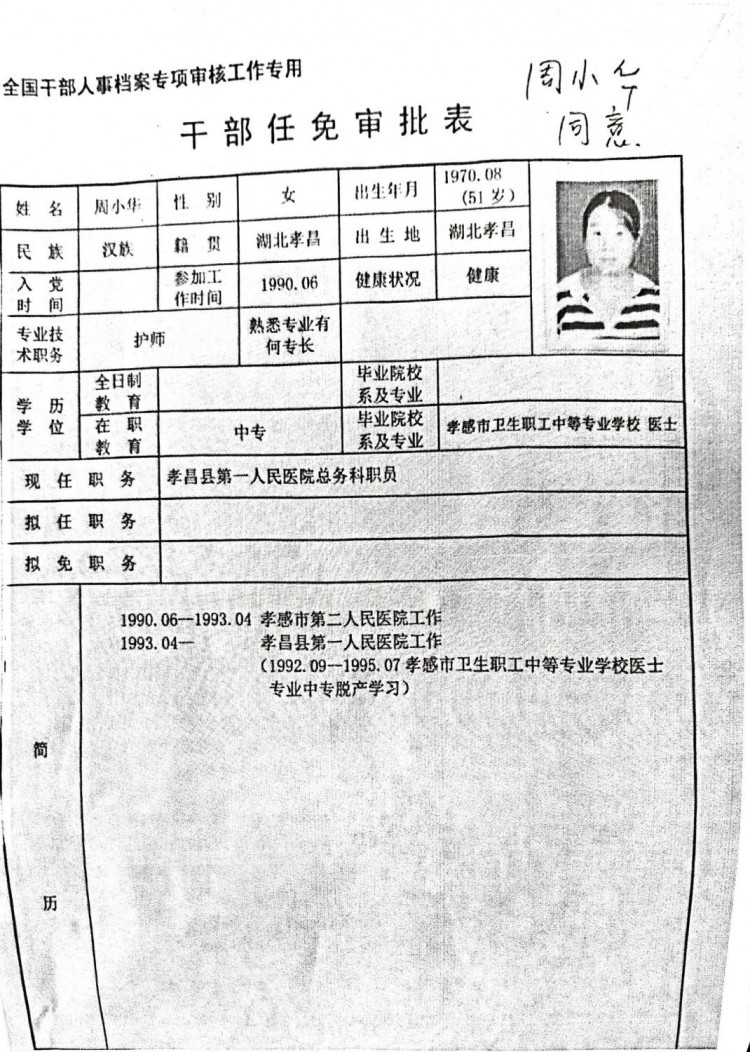 全国干部人事档案专项审核工作专用
周小华
同意.
干部任免审批表
姓名 周小华 性别 女 出生年月 1970.08 (51岁)
民族 汉族 籍贯 湖北孝昌 出生地 湖北孝昌
入党时间 参加工作时间 1990.06 健康状况 健康
专业技术职务 护师 熟悉专业有何专长
学历学位 全日制教育 毕业院校系及专业
在职教育 中专 毕业院校系及专业 孝感市卫生职工中等专业学校 医士
现任职务 孝昌县第一人民医院总务科职员
拟任职务
拟免职务
简历
1990.06--1993.04 孝感市第二人民医院工作
1993.04-- 孝昌县第一人民医院工作
(1992.09--1995.07 孝感市卫生职工中等专业学校医士
专业中专脱产学习)